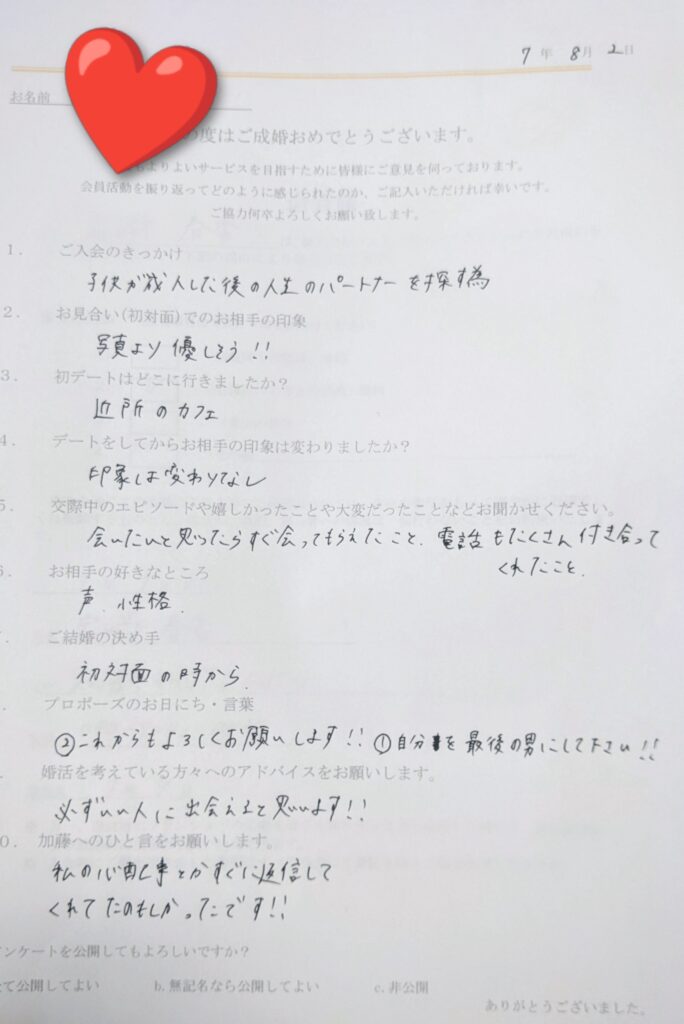 7年 8月 2日
お名前
の度はご成婚おめでとうございます。
よりよいサービスを目指すために皆様にご意見を伺っております。
会員活動を振り返ってどのように感じられたのか、ご記入いただければ幸いです。
ご協力何卒よろしくお願い致します。
1. ご入会のきっかけ
子供が成人した後の人生のパートナーを探す為
2. お見合い(初対面)でのお相手の印象
写真より優しそう!!
3. 初デートはどこに行きましたか?
近所のカフェ
4. デートをしてからお相手の印象は変わりましたか?
印象は変わりなし
5. 交際中のエピソードや嬉しかったことや大変だったことなどお聞かせください。
会いたいと思ったらすぐ会ってもらえたこと、電話もたくさん付き合って
くれたこと、
6. お相手の好きなところ
声、性格、
ご結婚の決め手
初対面の時から
プロポーズのお日にち・言葉
②これからもよろしくお願いします!! ①自分を最後の男にして下さい!!
婚活を考えている方々へのアドバイスをお願いします。
必ずいい人に出会えると思います!!
0. 加藤へのひと言をお願いします。
私の心配事とかすぐに返信して
くれてたのもしかったです!!
ンケートを公開してもよろしいですか?
て公開してよい b.無記名なら公開してよい c.非公開
ありがとうございました。